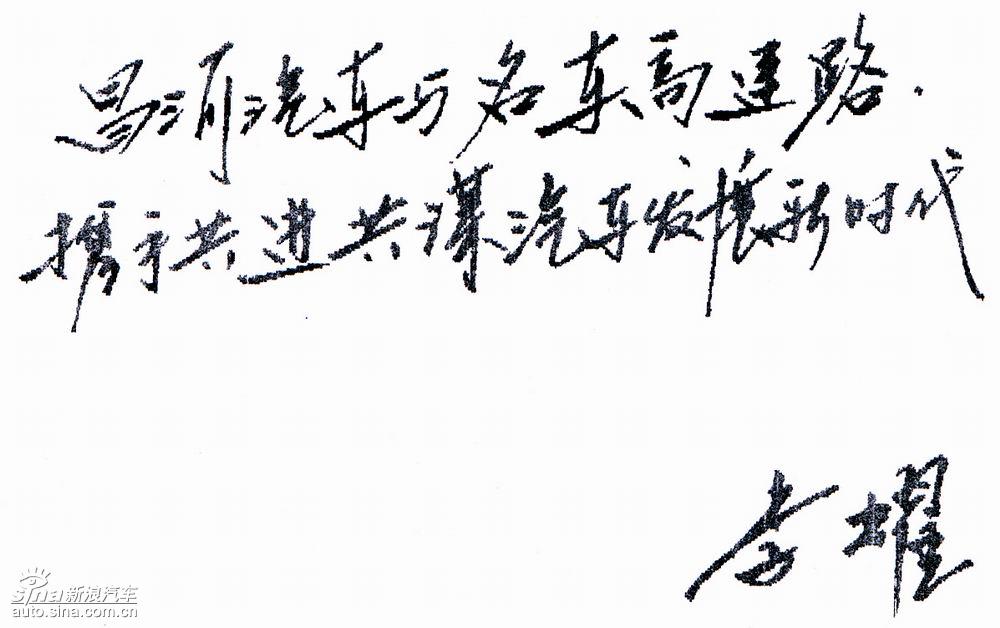 昌河汽车与名车高速路.
携手共进共谋汽车发展新时代
李耀
sina新浪汽车
auto.sina.com.cn